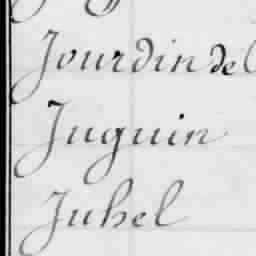 Jourdin de
Juguin
Juhel